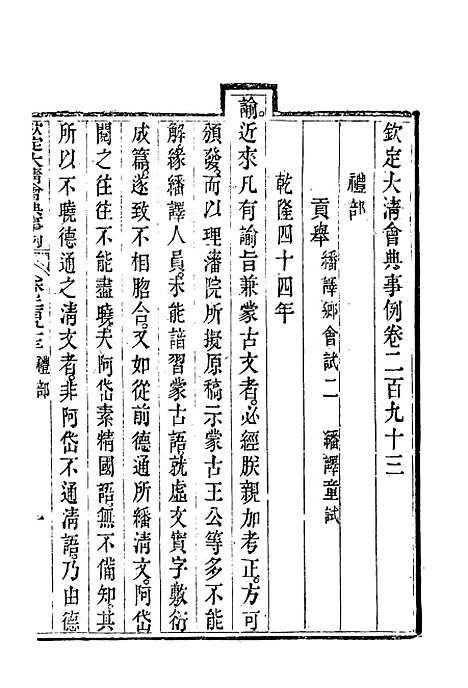 欽定大清會典事例卷二百九十三
禮部
貢舉 繙譯鄉會試二 繙譯童試
乾隆四十四年
諭。近來凡有諭旨兼蒙古文者。必經朕親加考正。方可
頒發。而以理藩院所擬原稿示蒙古王公等多不能
解。緣繙譯人員。未能諳習蒙古語。就虛文實字敷衍
成篇。遂致不相脗合。又如從前德通所繙清文。阿岱
閱之往往不能盡曉。夫阿岱素精國語。無不備知。其
所以不曉德通之清文者。非阿岱不通清語。乃由德
欽定大清會典事例 卷二百九十三 禮部 一